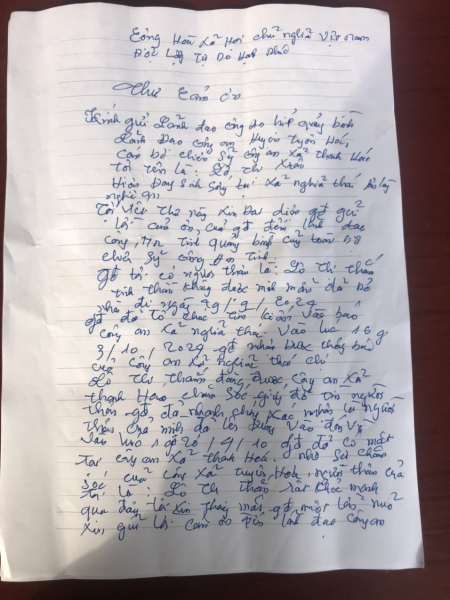 Cộng Hoà Xã Hội chủ nghĩa Việt nam
Độc Lập Tự Do Hạnh Phúc
Thư Cảm ơn
Kính gửi Lãnh đạo công an tỉnh quảng bình
Lãnh Đạo công an Huyện tuyên Hoá,
cán bộ chiến sỹ công an xã thanh Hoá
Tôi tên là: Lô Thị
Hiện Đang sinh sống tại xã nghĩa thái
nghệ an
Tôi viết thư này xin Đại diện gđ gửi
Lời cảm ơn, của gđ đến lãnh đạo
công an tỉnh quảng bình cùng toàn bộ
chiến sỹ công an tỉnh
gđ tôi có người thân là: Lô Thị thắm
tinh thần không được minh mẫn đã bỏ
nhà đi ngày 29/9/2024
gđ đã tổ chức tìm kiếm và báo
công an xã nghĩa thái vào lúc 16 g
3/10 2024 gđ nhận được thông báo
của công an xã nghĩa thái chị
Lô Thị thắm đang được công an xã
thanh Hoá chăm sóc, giúp đỡ tìm người
thân gđ đã nhanh chóng xác nhận là người
thân của mình đã lên đường vào đón
vào lúc 1 g 20 / 4 / 10 gđ đã có mặt
tại công an xã thanh Hoá. nhờ sự chăm
sóc của công xã tuyên Hoá, người thân của
tôi là: Lô Thị Thắm rất khoẻ mạnh
qua đây tôi xin thay mặt gđ một lần nữa
xin gửi lời cảm ơn tới lãnh đạo công an